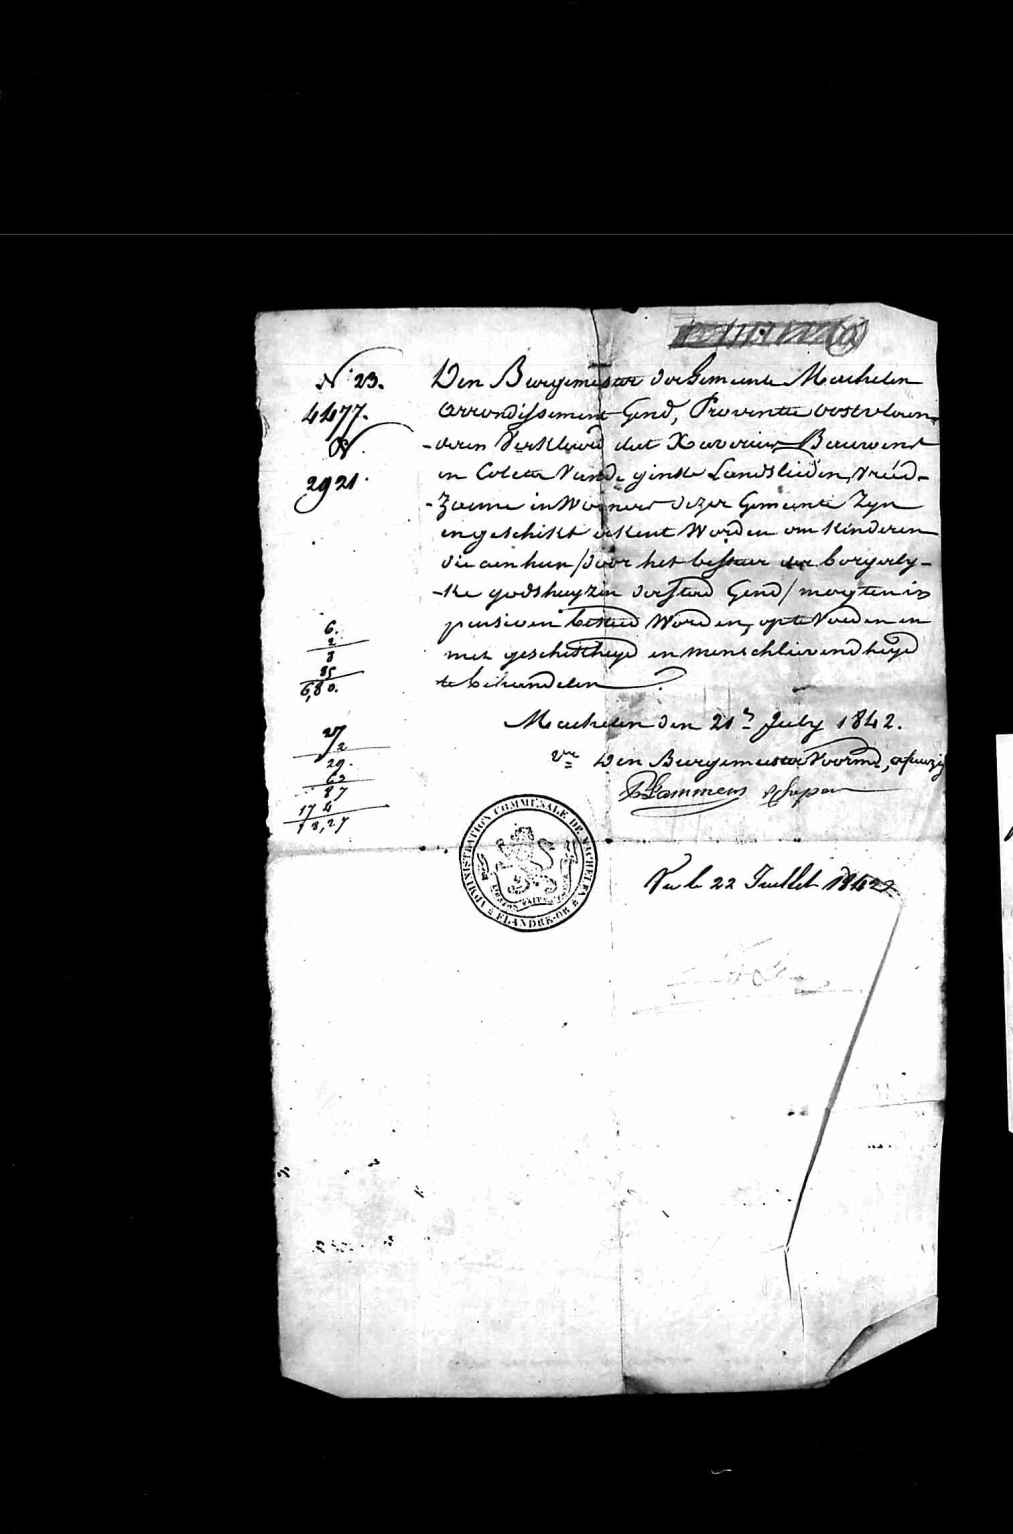 N° 23.
4477.
2921.
Den Burgemeester der Gemeente Machelen
arrondissement Gend, Provintie oostvlaen-
-deren Verklaerd dat Xaverius Bauwens
en Coleta Vande ginste Landslieden, vreed-
-Zaeme inwooners dezer Gemeente Zyn
en geschikt erkent Worden om kinderen
die aen hun /door het bestuer der borgerly-
-ke godshuyzen der stad Gend/ mogten in
pensioen besteed Worden, op te Voeden en
met geschiktheyd en menschlievendheyd
te behandelen
6.
2
8
85
6,80.
27
2
29.
63
87
17 4
18,27
Machelen den 21n July 1842.
vor Den Burgemeester Voormd, afwezig
Lammens Schepen
ADMINISTRATION COMMUNALE DE MACHELEN
FLANDRE-OR
Vu le 22 Juillet 1842